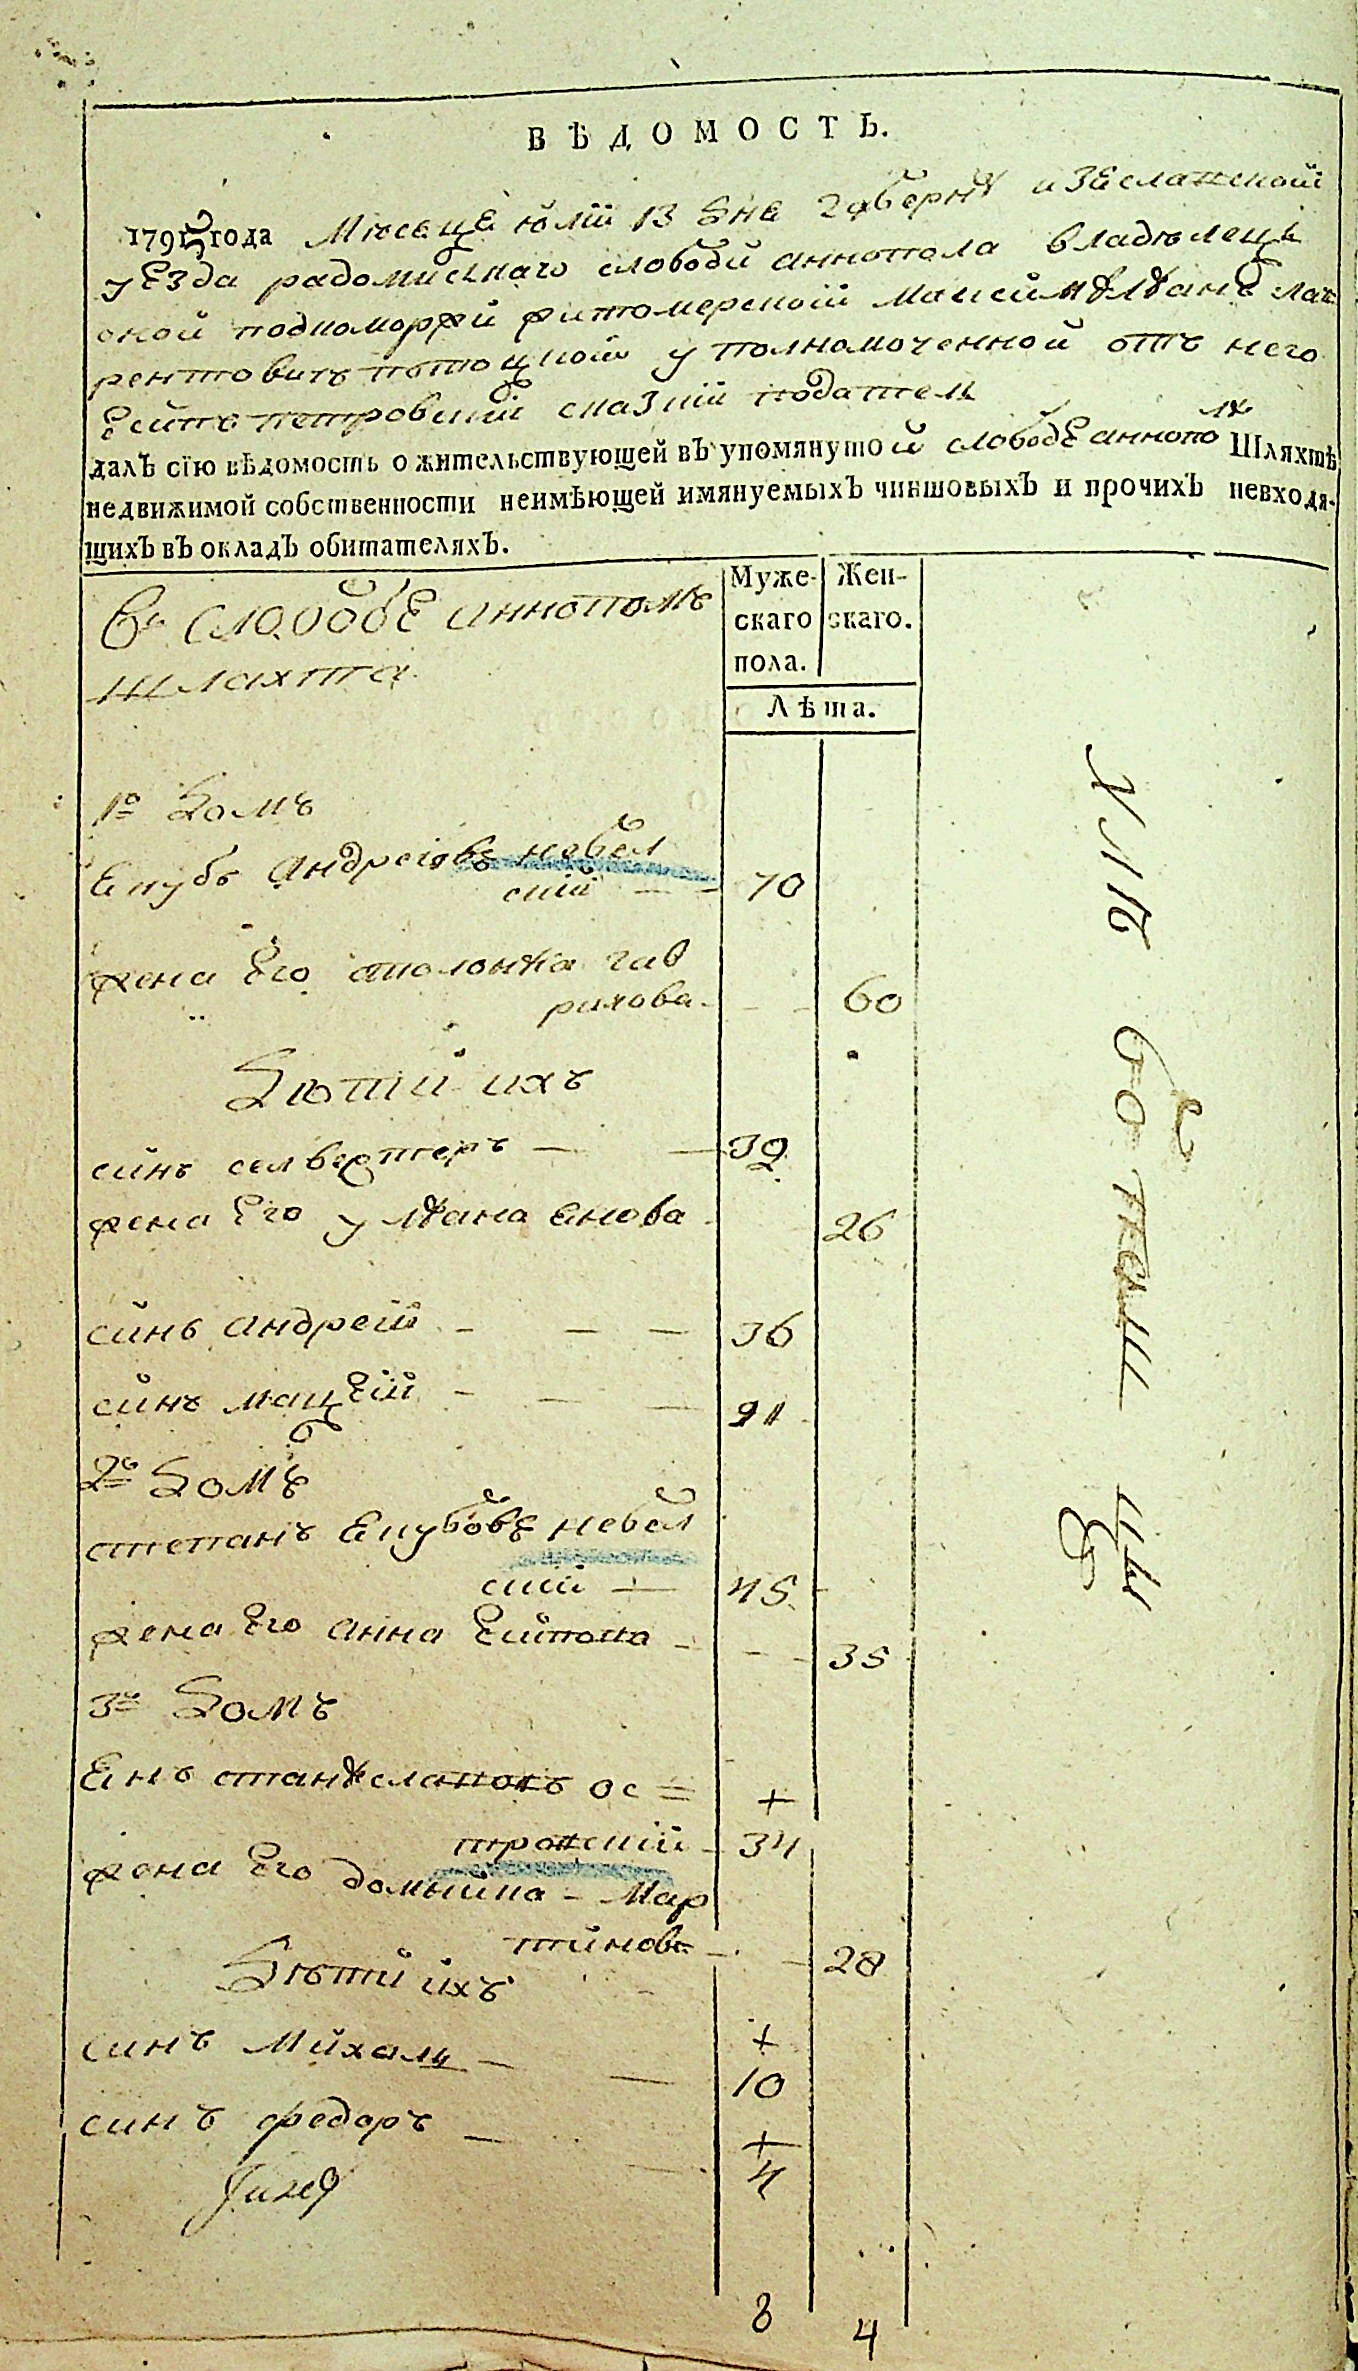 ВѢДОМОСТЬ.
1795 года Мѣсеце юлїи 13 дне губернѣ изеславской
уезда радомислкаго слободи аннопола владѣлеца
ской подкоморжей житомерской Максимилиане лав
рентовичъ потоцкой уполномоченной отъ него
есипъ петровский сказкий подателъ
далЪ сїю вѣдомость о жительствующей вЪ упомянутой слободе аннополя Шляхтѣ
недвижимой собственности неимѣющей имянуемыхЪ чиншовыхЪ и прочихЪ невходя-
щихЪ вЪ окладЪ обитателяхЪ.
Въ слободе аннополѣ
шлахта
Муже-скаго пола.
Жен-скаго.
Лѣта.
1о домъ
Екубъ андреіове невел
ский — — 70
жена его аполония гав
рилова — — 60
дѣтий ихъ
синъ селвестеръ — — 39
жена его улиана енова 26
синъ андрей — — — 36
синъ мацей — — — 21
2о домъ
степанъ Екубове невел
ский — 45
жена его анна есипова — — — 35
3о домъ
Енъ станиславовъ ос =
+
трожский — 34
жена его домыйка — Мар
тинова — — 28
дѣтий ихъ
+
синъ михалъ — — 10
+
синъ федоръ — — 4
8 4